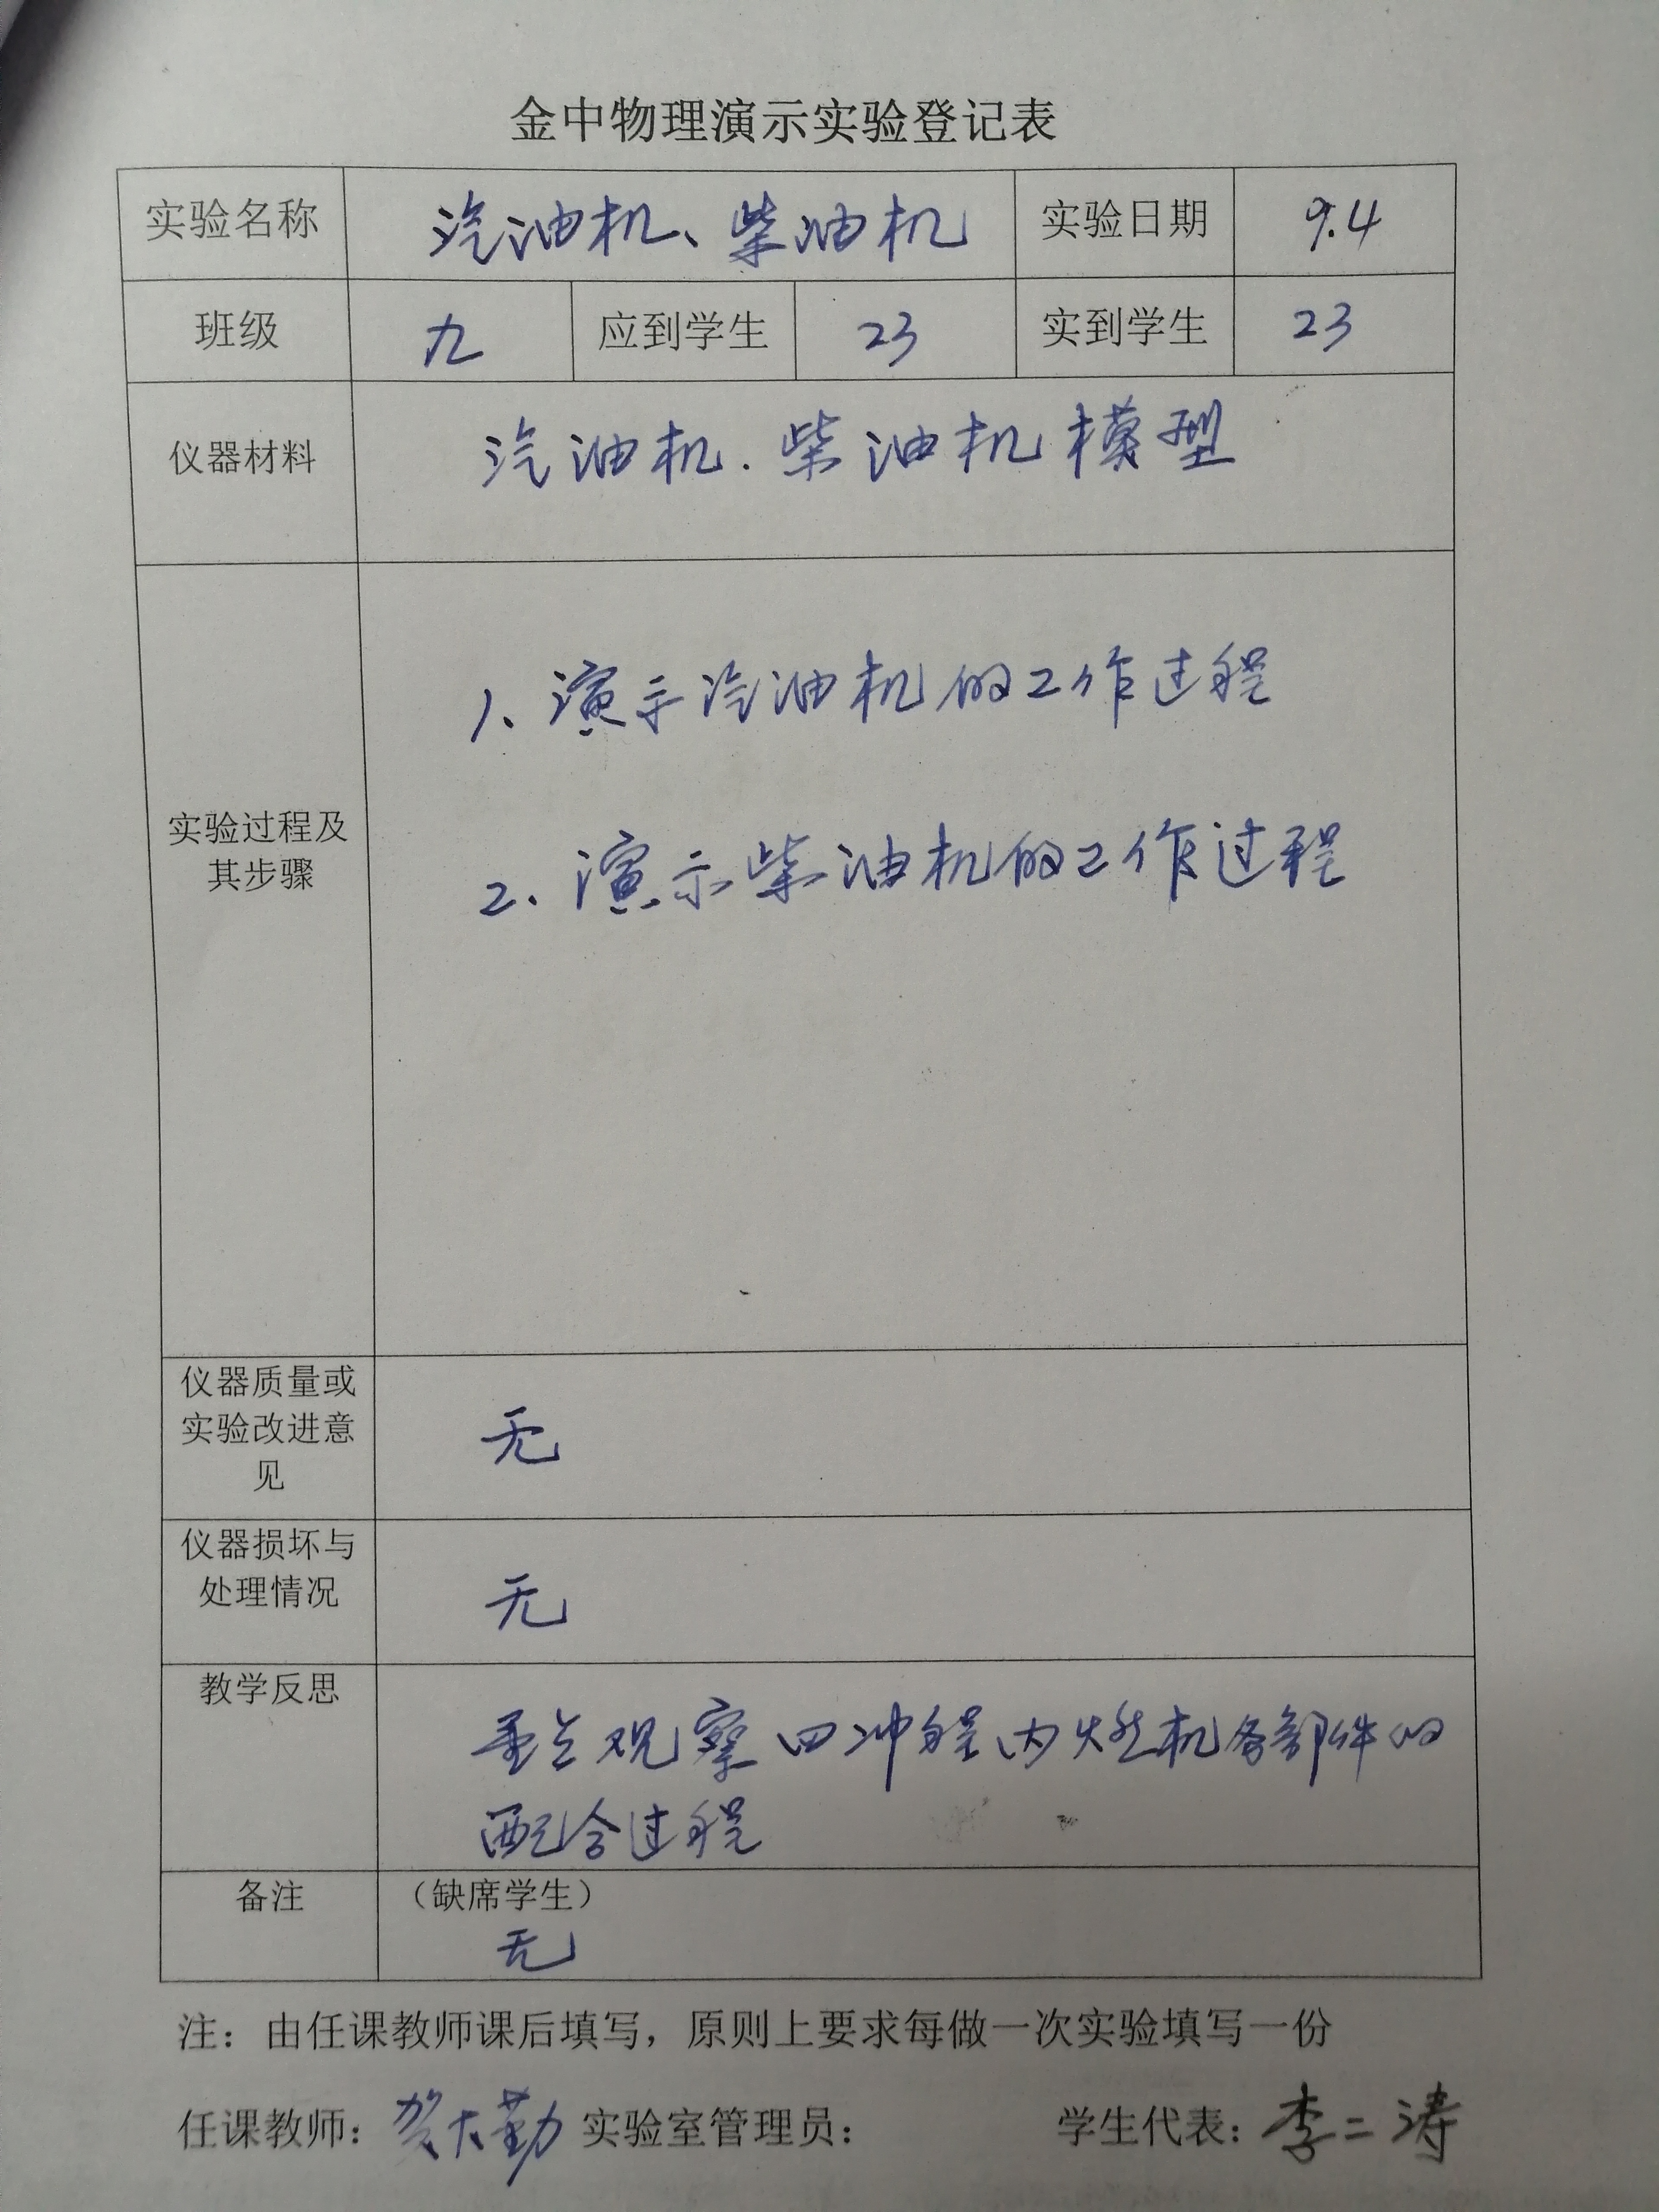 金中物理演示实验登记表
实验名称 汽油机、柴油机 实验日期 9.4
班级 九 应到学生 23 实到学生 23
仪器材料 汽油机.柴油机模型
1、演示汽油机的工作过程
实验过程及
其步骤
2、演示柴油机的工作过程
仪器质量或
实验改进意
见
无
仪器损坏与
处理情况
无
教学反思
重点观察四冲程内燃机各部件的
配合过程
备注 （缺席学生）
无
注：由任课教师课后填写，原则上要求每做一次实验填写一份
任课教师：贺大勤 实验室管理员： 学生代表：李二涛